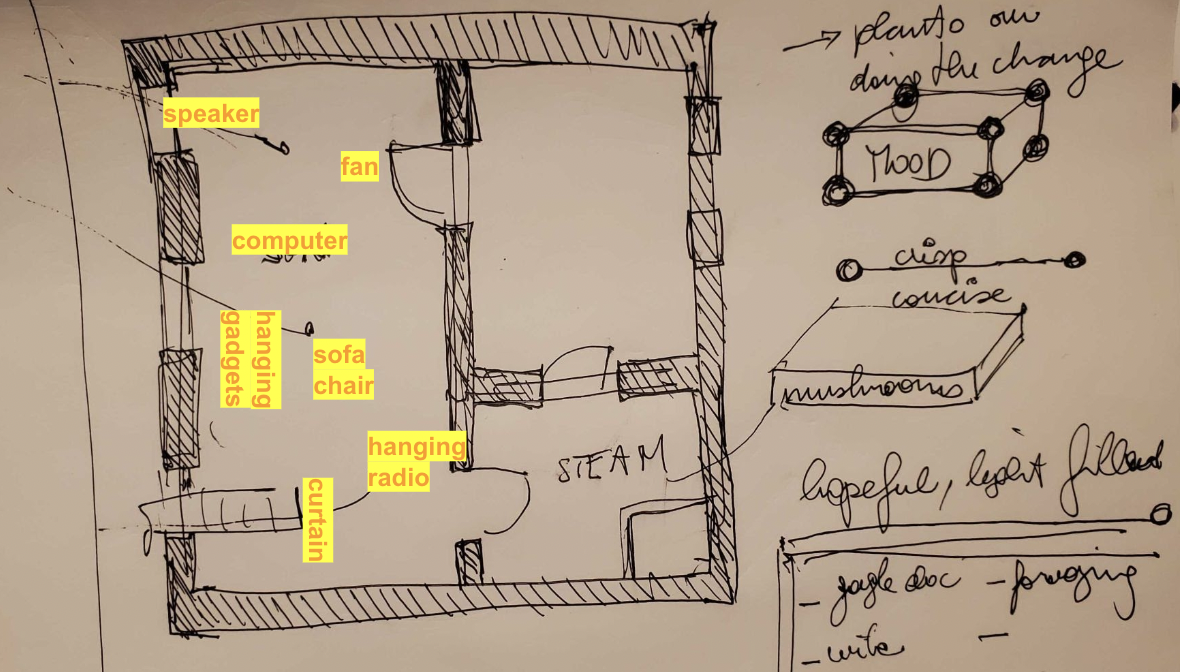 → planto our
doing the change
speaker
fan
MOOD
computer
crisp
concise
hanging
gadgets
sofa
chair
mushrooms
hanging
radio
STEAM
curtain
hopeful, light filled
- gogle doc
- foraging
- write
-